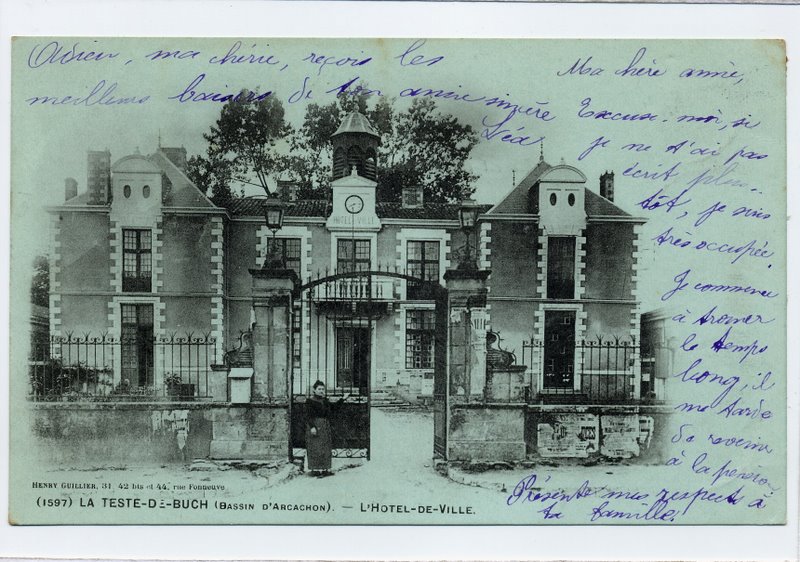 Ma chère amie,
Excuse-moi, si
je ne t'ai pas
écrit plus
tôt, je suis
très occupée.
Je commence
à trouver
le temps
long, il
me tarde
de revenir
à la pension
Présente mes respects à
ta famille!
Adieu, ma chérie, reçois les
meilleurs baisers de ton amie sincère
Léa
HOTEL DE VILLE
HENRY GUILLIER, 31, 42 bis et 44, rue Fonneuve
(1597) LA TESTE-DE-BUCH (BASSIN D'ARCACHON). — L'HOTEL-DE-VILLE.